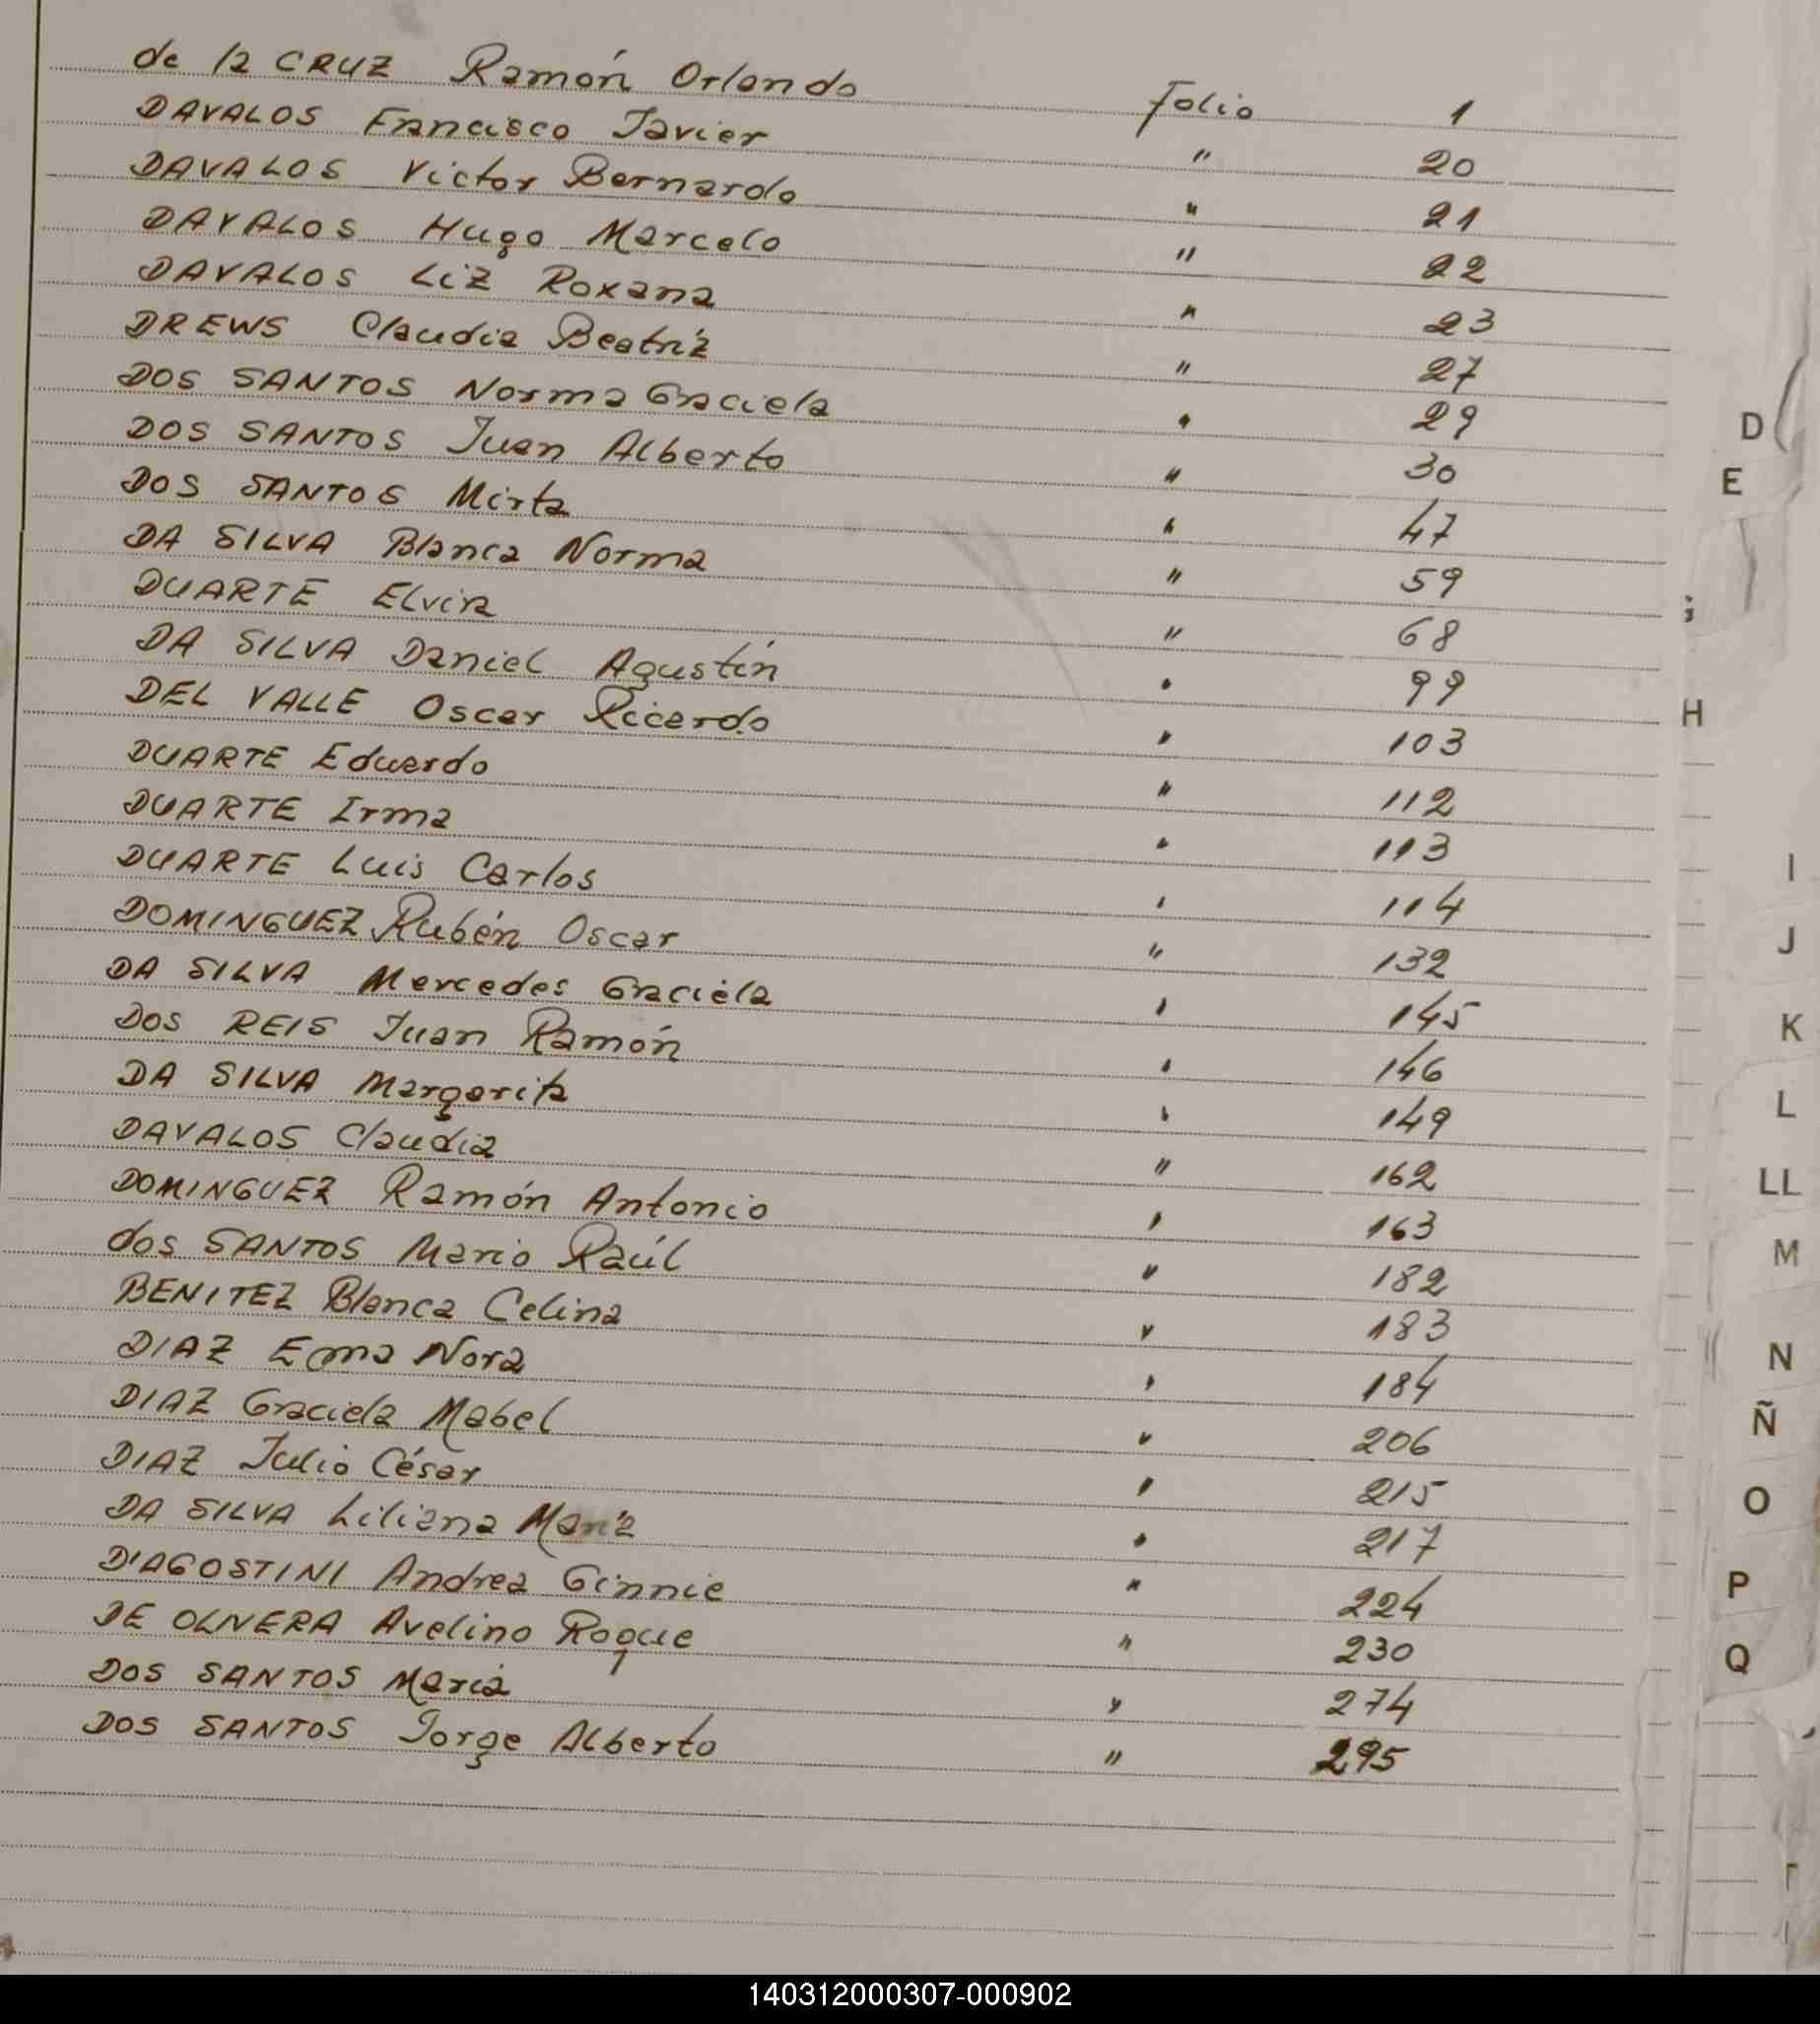 de la CRUZ Ramón Orlando Folio 1
DAVALOS Francisco Javier " 20
DAVALOS Victor Bernardo " 21
DAVALOS Hugo Marcelo " 22
DAVALOS Liz Roxana " 23
DREWS Claudia Beatríz " 27
DOS SANTOS Norma Graciela " 29
DOS SANTOS Juan Alberto " 30
DOS SANTOS Mirta " 47
DA SILVA Blanca Norma " 59
DUARTE Elvira " 68
DA SILVA Daniel Agustín " 99
DEL VALLE Oscar Ricardo " 103
DUARTE Eduardo " 112
DUARTE Irma " 113
DUARTE Luis Carlos " 114
DOMINGUEZ Rubén Oscar " 132
DA SILVA Mercedes Graciela " 145
DOS REIS Juan Ramón " 146
DA SILVA Margarita " 149
DAVALOS Claudia " 162
DOMINGUEZ Ramón Antonio " 163
dos SANTOS Mario Raúl " 182
BENITEZ Blanca Celina " 183
DIAZ Ema Nora " 184
DIAZ Graciela Mabel " 206
DIAZ Julio César " 215
DA SILVA Liliana María " 217
D'AGOSTINI Andrea Ginnie " 224
DE OLIVERA Avelino Roque " 230
DOS SANTOS María " 274
DOS SANTOS Jorge Alberto " 295
D
E
G
H
I
J
K
L
LL
M
N
Ñ
O
P
Q
140312000307-000902